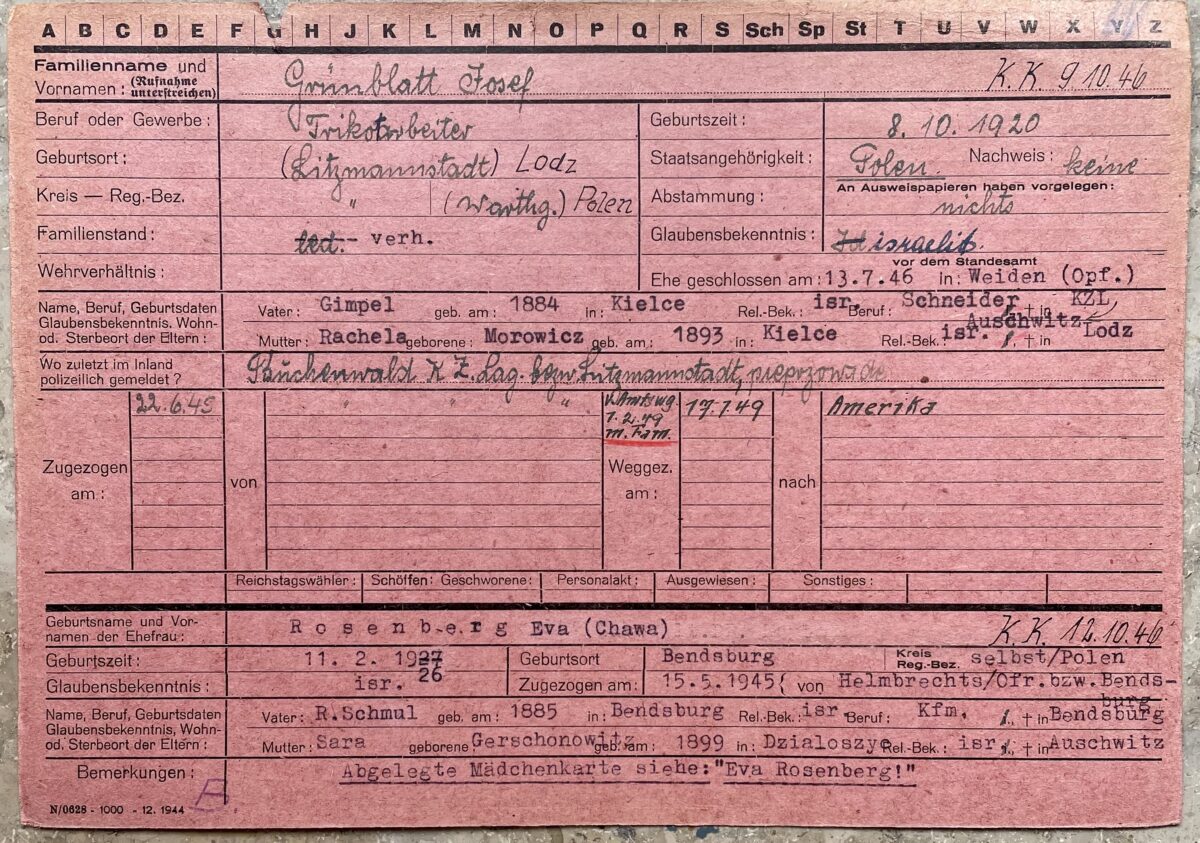 A B C D E F G H J K L M N O P Q R S Sch Sp St T U V W X Y Z
Familienname und Vornamen: (Rufnahme unterstreichen) Grünblatt Josef K.K. 9.10.46
Beruf oder Gewerbe: Trikotarbeiter Geburtszeit: 8.10.1920
Geburtsort: (Litzmannstadt) Lodz Staatsangehörigkeit: Polen. Nachweis: keine
Kreis — Reg.-Bez. " (Warthg.) Polen Abstammung: An Ausweispapieren haben vorgelegen: nichts
Familienstand: led.- verh. Glaubensbekenntnis: israelit.
Wehrverhältnis: Ehe geschlossen am: 13.7.46 vor dem Standesamt in: Weiden (Opf.)
Name, Beruf, Geburtsdaten Glaubensbekenntnis, Wohn- od. Sterbeort der Eltern:
Vater: Gimpel geb. am: 1884 in: Kielce Rel.-Bek.: isr. Beruf: Schneider † in KZL, Auschwitz
Mutter: Rachela geborene: Morowicz geb. am: 1893 in: Kielce Rel.-Bek.: isr. † in Lodz
Wo zuletzt im Inland polizeilich gemeldet? Buchenwald K Z. Lag. bezw. Litzmannstadt,
Zugezogen am: 22.6.45 von " " " Weggez. am: v. Amtswg. 1.2.49 m. Fam. 17.1.49 nach Amerika
Reichstagswähler: Schöffen: Geschworene: Personalakt: Ausgewiesen: Sonstiges:
Geburtsname und Vornamen der Ehefrau: Rosenberg Eva (Chawa) K.K. 12.10.46
Geburtszeit: 11. 2. 1927 26 Geburtsort Bendsburg Kreis Reg.-Bez. selbst/Polen
Glaubensbekenntnis: isr. Zugezogen am: 15.5.1945( von Helmbrechts/Ofr.bzw.Bendsburg
Name, Beruf, Geburtsdaten Glaubensbekenntnis, Wohn- od. Sterbeort der Eltern:
Vater: R.Schmul geb. am: 1885 in: Bendsburg Rel.-Bek. isr. Beruf: Kfm. † in Bendsburg
Mutter: Sara geborene Gerschonowitz geb. am: 1899 in: Dzialoszyc Rel.-Bek.: isr. † in Auschwitz
Bemerkungen: Abgelegte Mädchenkarte siehe: "Eva Rosenberg!"
N/0628 - 1000 - 12. 1944